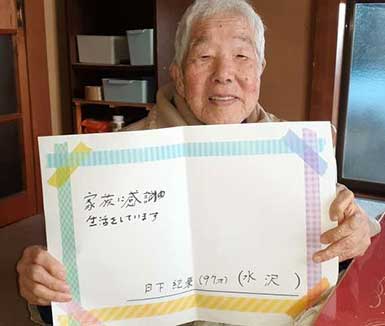 家族に感謝
生活をしています
日下 (97才) (水沢)